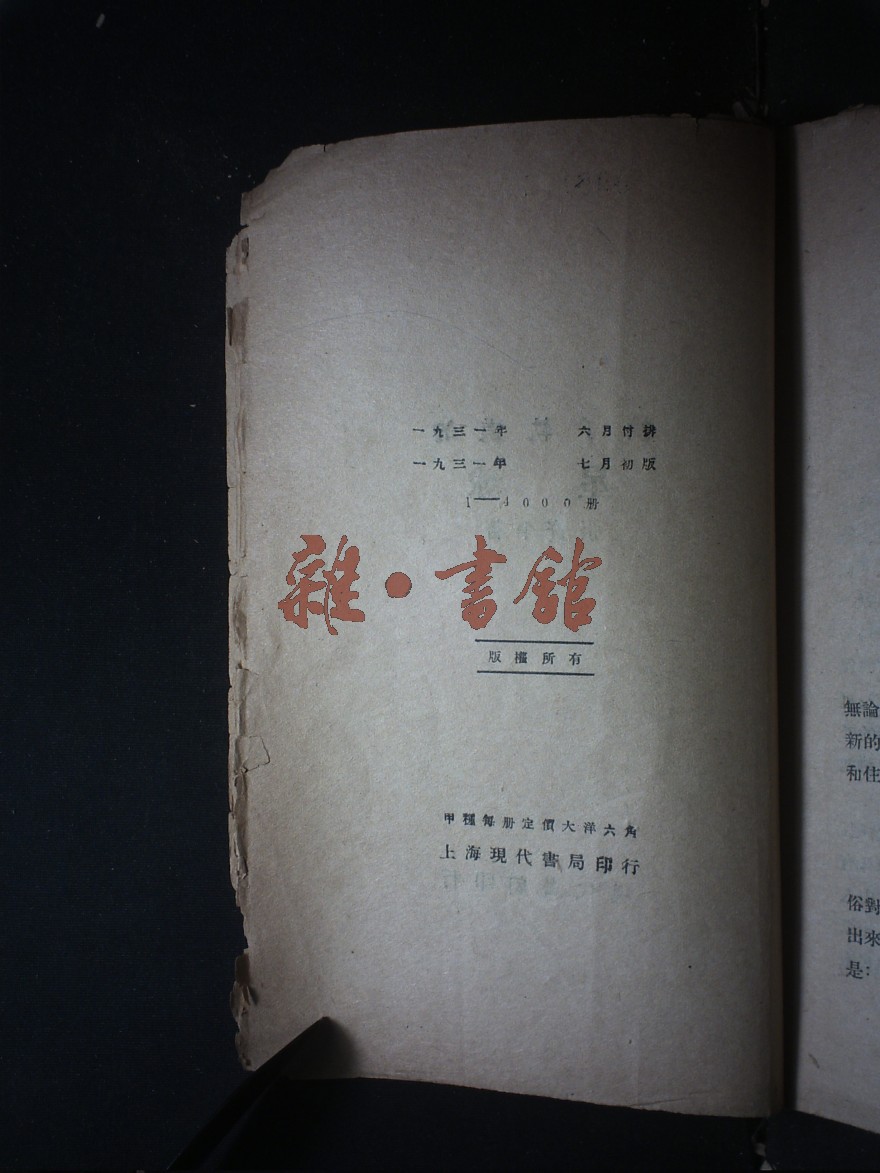 一九三一年 六月付排
一九三一年 七月初版
1—4000册
雜·書館
版權所有
甲種每册定價大洋六角
上海現代書局印行
無論
新的
和住
俗對
出來
是：